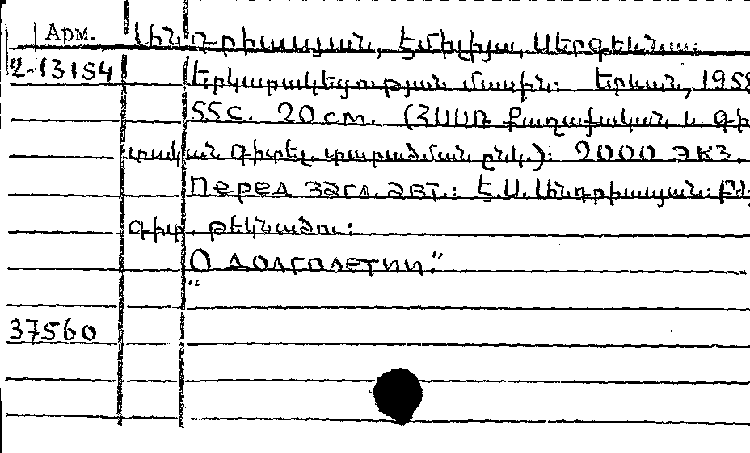 Арм. Լինդրիասյան, Էմիլիյա Սերգեևնա:
2-13154 Երկարակեցության մասին: Երևան, 1958
55с. 20см. (ՀՍՍՌ Քաղաքական և գի
տական գիտել. տարածման ընկ.): 2000 экз.
Перед загл. авт.: Է.Ս.Լինդրիասյան: Բժշ
գիտ. թեկնածու:
"О долголетии."
37560